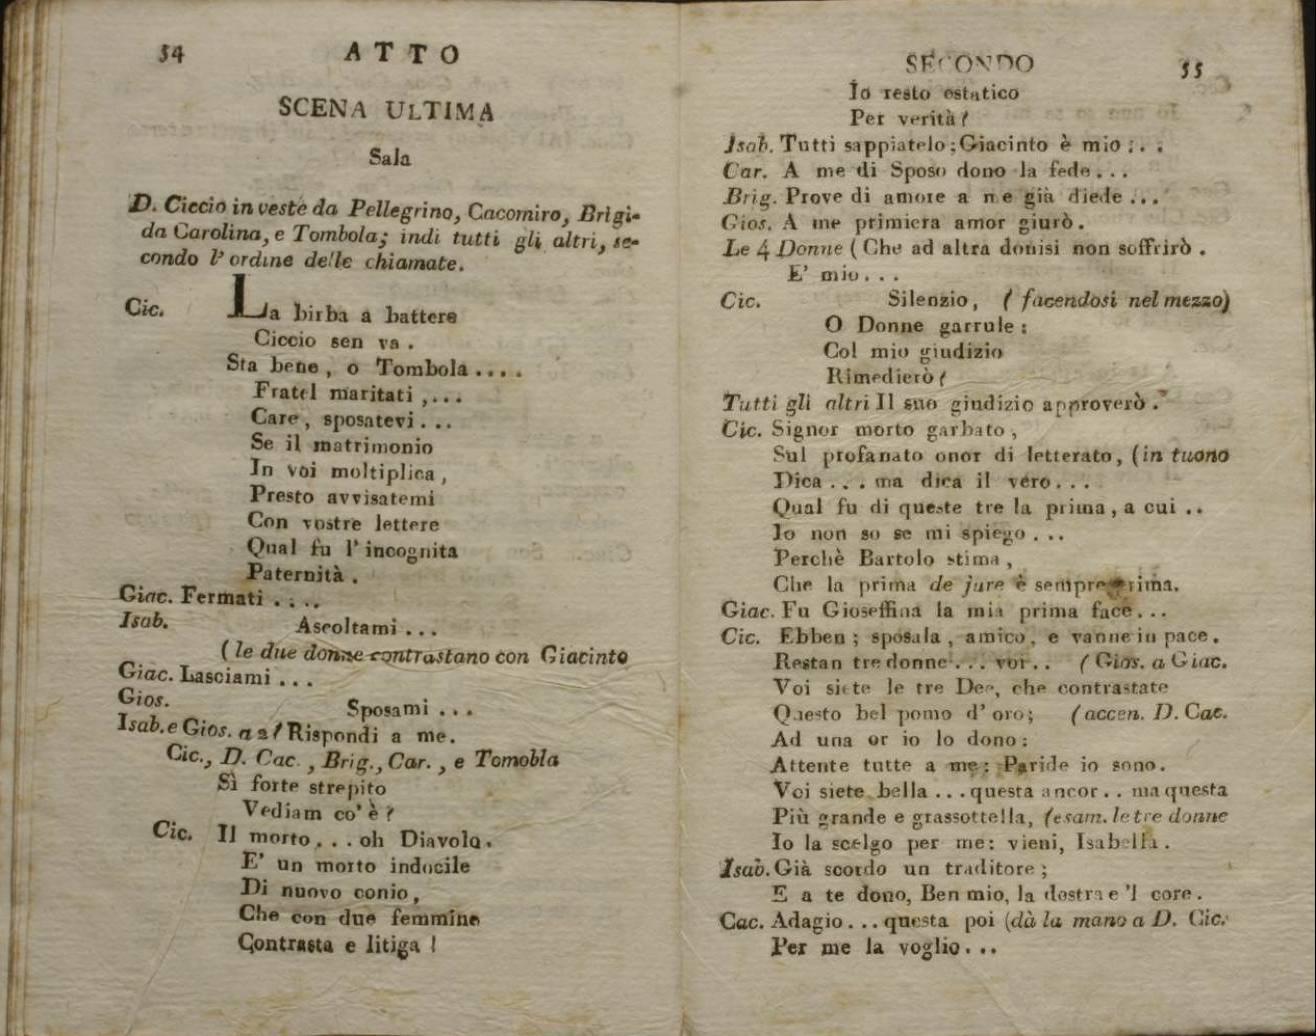 54 ATTO
SCENA ULTIMA
Sala
D. Ciccio in veste da Pellegrino, Cacomiro, Brigi-
da Carolina, e Tombola; indi tutti gli altri, se-
condo l' ordine delle chiamate.
Cic. La birba a battere
Ciccio sen va .
Sta bene , o Tombola ....
Fratel maritati ,...
Care, sposatevi ...
Se il matrimonio
In voi moltiplica ,
Presto avvisatemi
Con vostre lettere
Qual fu l' incognita
Paternità .
Giac. Fermati ....
Isab. Ascoltami ...
( le due donne contrastano con Giacinto
Giac. Lasciami ...
Gios. Sposami ...
Isab. e Gios. a 2 ! Rispondi a me.
Cic., D. Cac. , Brig., Car. , e Tomobla
Sì forte strepito
Vediam co' è ?
Cic. Il morto ... oh Diavolo.
E' un morto indocile
Di nuovo conio ,
Che con due femmine
Contrasta e litiga !
SECONDO 55
Io resto estatico
Per verità !
Isab. Tutti sappiatelo ; Giacinto è mio ...
Car. A me di Sposo dono la fede ...
Brig. Prove di amore a me già diede ...
Gios. A me primiera amor giurò .
Le 4 Donne ( Che ad altra donisi non soffrirò .
E' mio ...
Cic. Silenzio, ( facendosi nel mezzo)
O Donne garrule :
Col mio giudizio
Rimedierò !
Tutti gli altri Il suo giudizio approverò .
Cic. Signor morto garbato ,
Sul profanato onor di letterato, (in tuono
Dica ... ma dica il vero ...
Qual fu di queste tre la prima, a cui ..
Io non so se mi spiego ...
Perchè Bartolo stima ,
Che la prima de jure è sempre prima.
Giac. Fu Gioseffina la mia prima face ...
Cic. Ebben ; sposala , amico, e vanne in pace.
Restan tre donne ... voi .. ( Gios. a Giac.
Voi siete le tre Dee, che contrastate
Questo bel pomo d' oro; (accen. D. Cac.
Ad una or io lo dono :
Attente tutte a me : Paride io sono.
Voi siete bella ... questa ancor .. ma questa
Più grande e grassottella, (esam. le tre donne
Io la scelgo per me: vieni, Isabella .
Isab. Già scordo un traditore ;
E a te dono, Ben mio, la destra e 'l core.
Cac. Adagio ... questa poi (dà la mano a D. Cic.
Per me la voglio ...